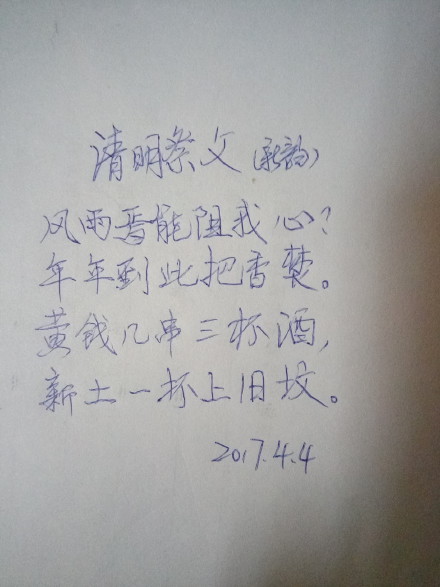 清明祭文(新韵)
风雨焉能阻我心?
年年到此把香焚。
黄钱几串三杯酒,
新土一抔上旧坟。
2017.4.4